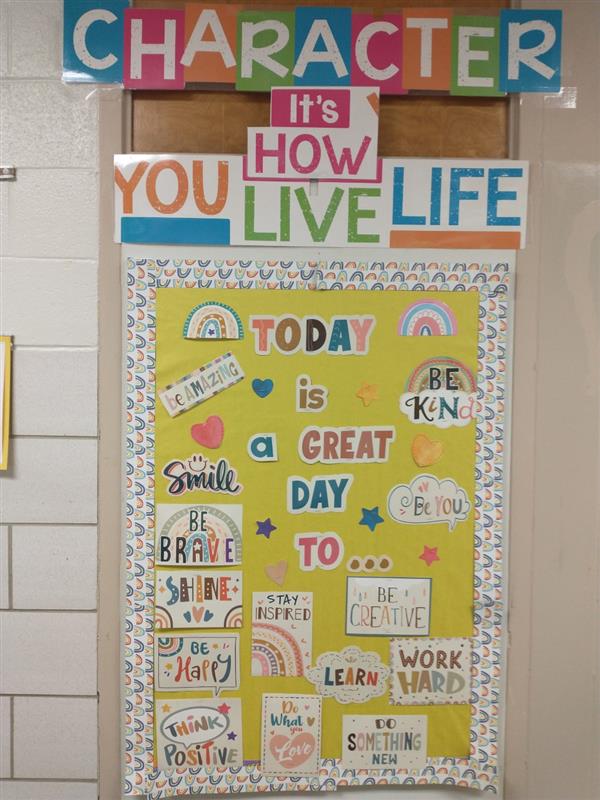 CHARACTER
It's
HOW
YOU LIVE LIFE
TODAY
is
a GREAT
DAY
TO...
be AMAZING
BE
KiNd
Smile
Be You
BE
BRAVE
SHINE
STAY
INSPIRED
BE
CREATIVE
BE
HAPPy
LEARN
WORK
HARD
THiNK
PoSiTiVE
Do
What
you
Love
DO
SOMETHING
NEW